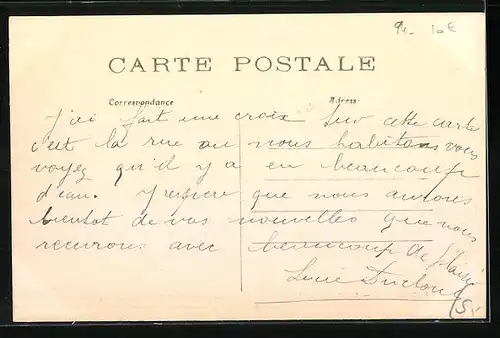 94 - 10€
CARTE POSTALE
Correspondance
Adresse
J'ai fait une croix sur cette carte
c'est la rue ou nous habitons vous
voyez qu'il y a eu beaucoup
d'eau. J'espere que nous aurons
bientot de vos nouvelles que nous
recevrons avec beaucoup de plaisir
Lucie Duclou